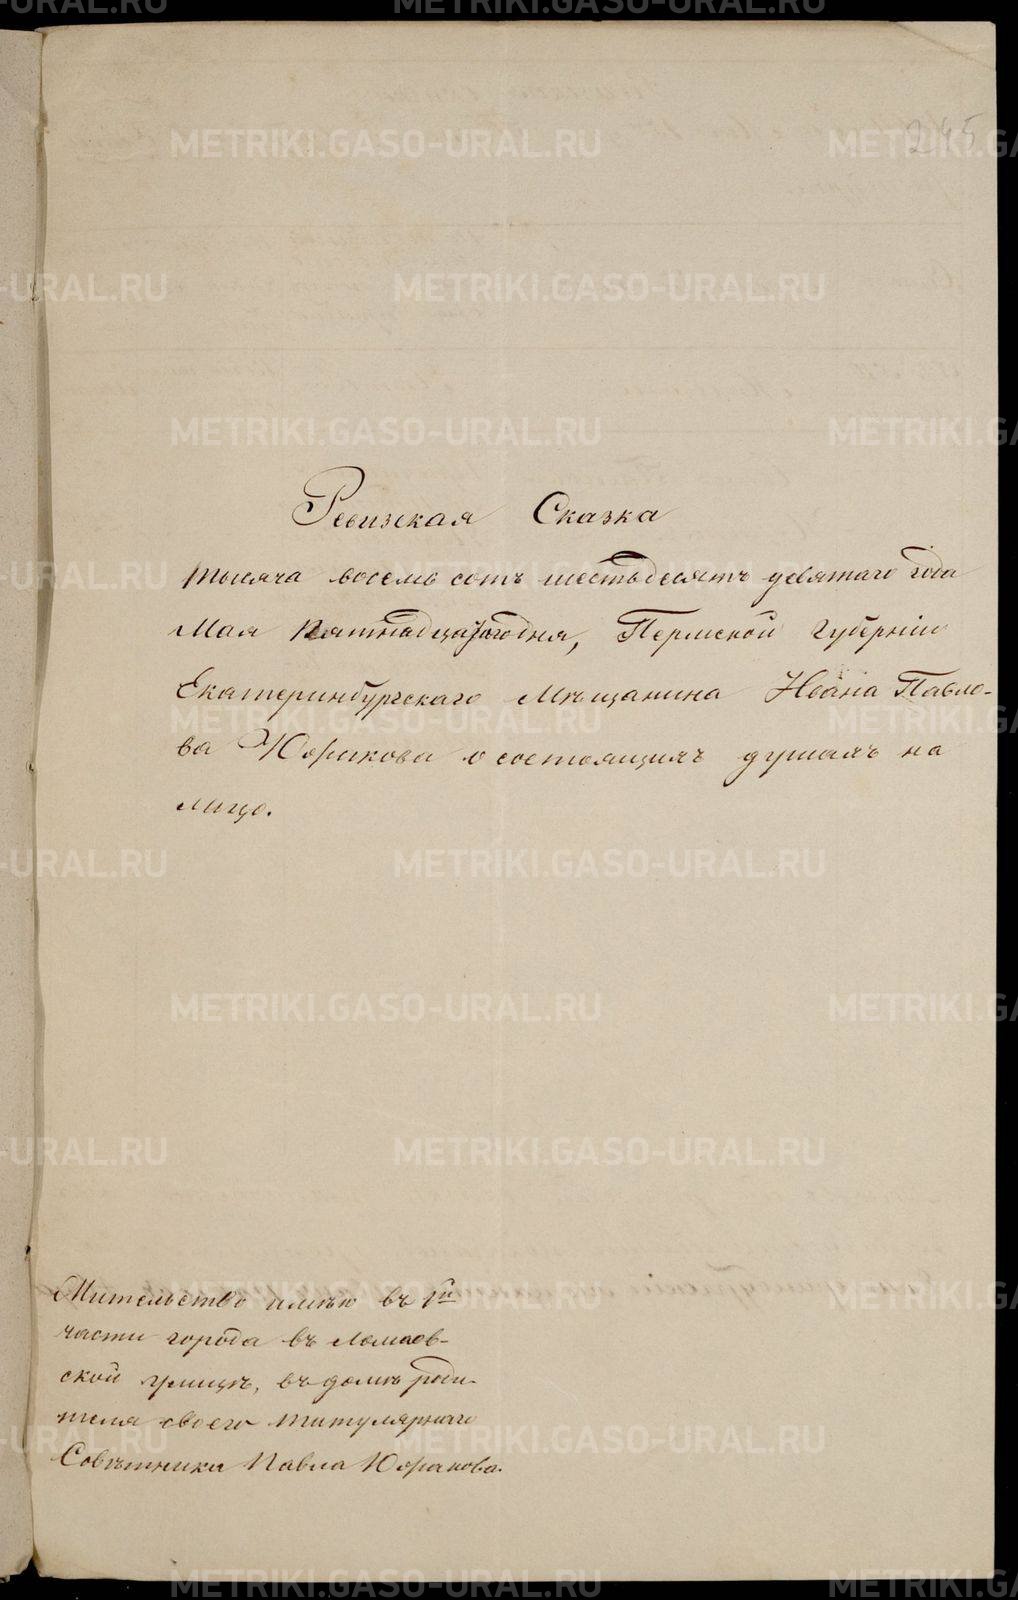 245
Ревизская Сказка
тысяча восемь сотъ шестьдесятъ девятаго года
Мая пятнадцатого дня, Пермской губерніи
Екатеринбургскаго Мѣщанина Ивана Павло-
ва Юрикова о состоящихъ душахъ на
лицо.
Жительство имѣю въ 1й
части города въ Ломаев-
ской улицѣ, въ домѣ роди-
теля своего титулярнаго
Совѣтника Павла
METRIKI.GASO-URAL.RU